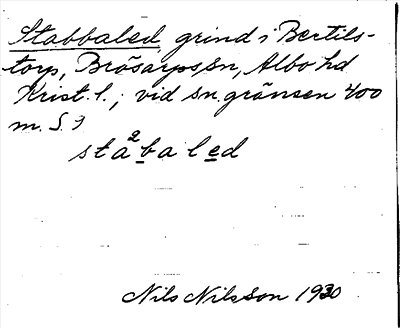 Stabbaled, grind i Bertils-
torp, Brösarps sn, Albo hd
Krist. l.; vid sn.gränsen 400
m. S. ?
sta²baled
Nils Nilsson 1930